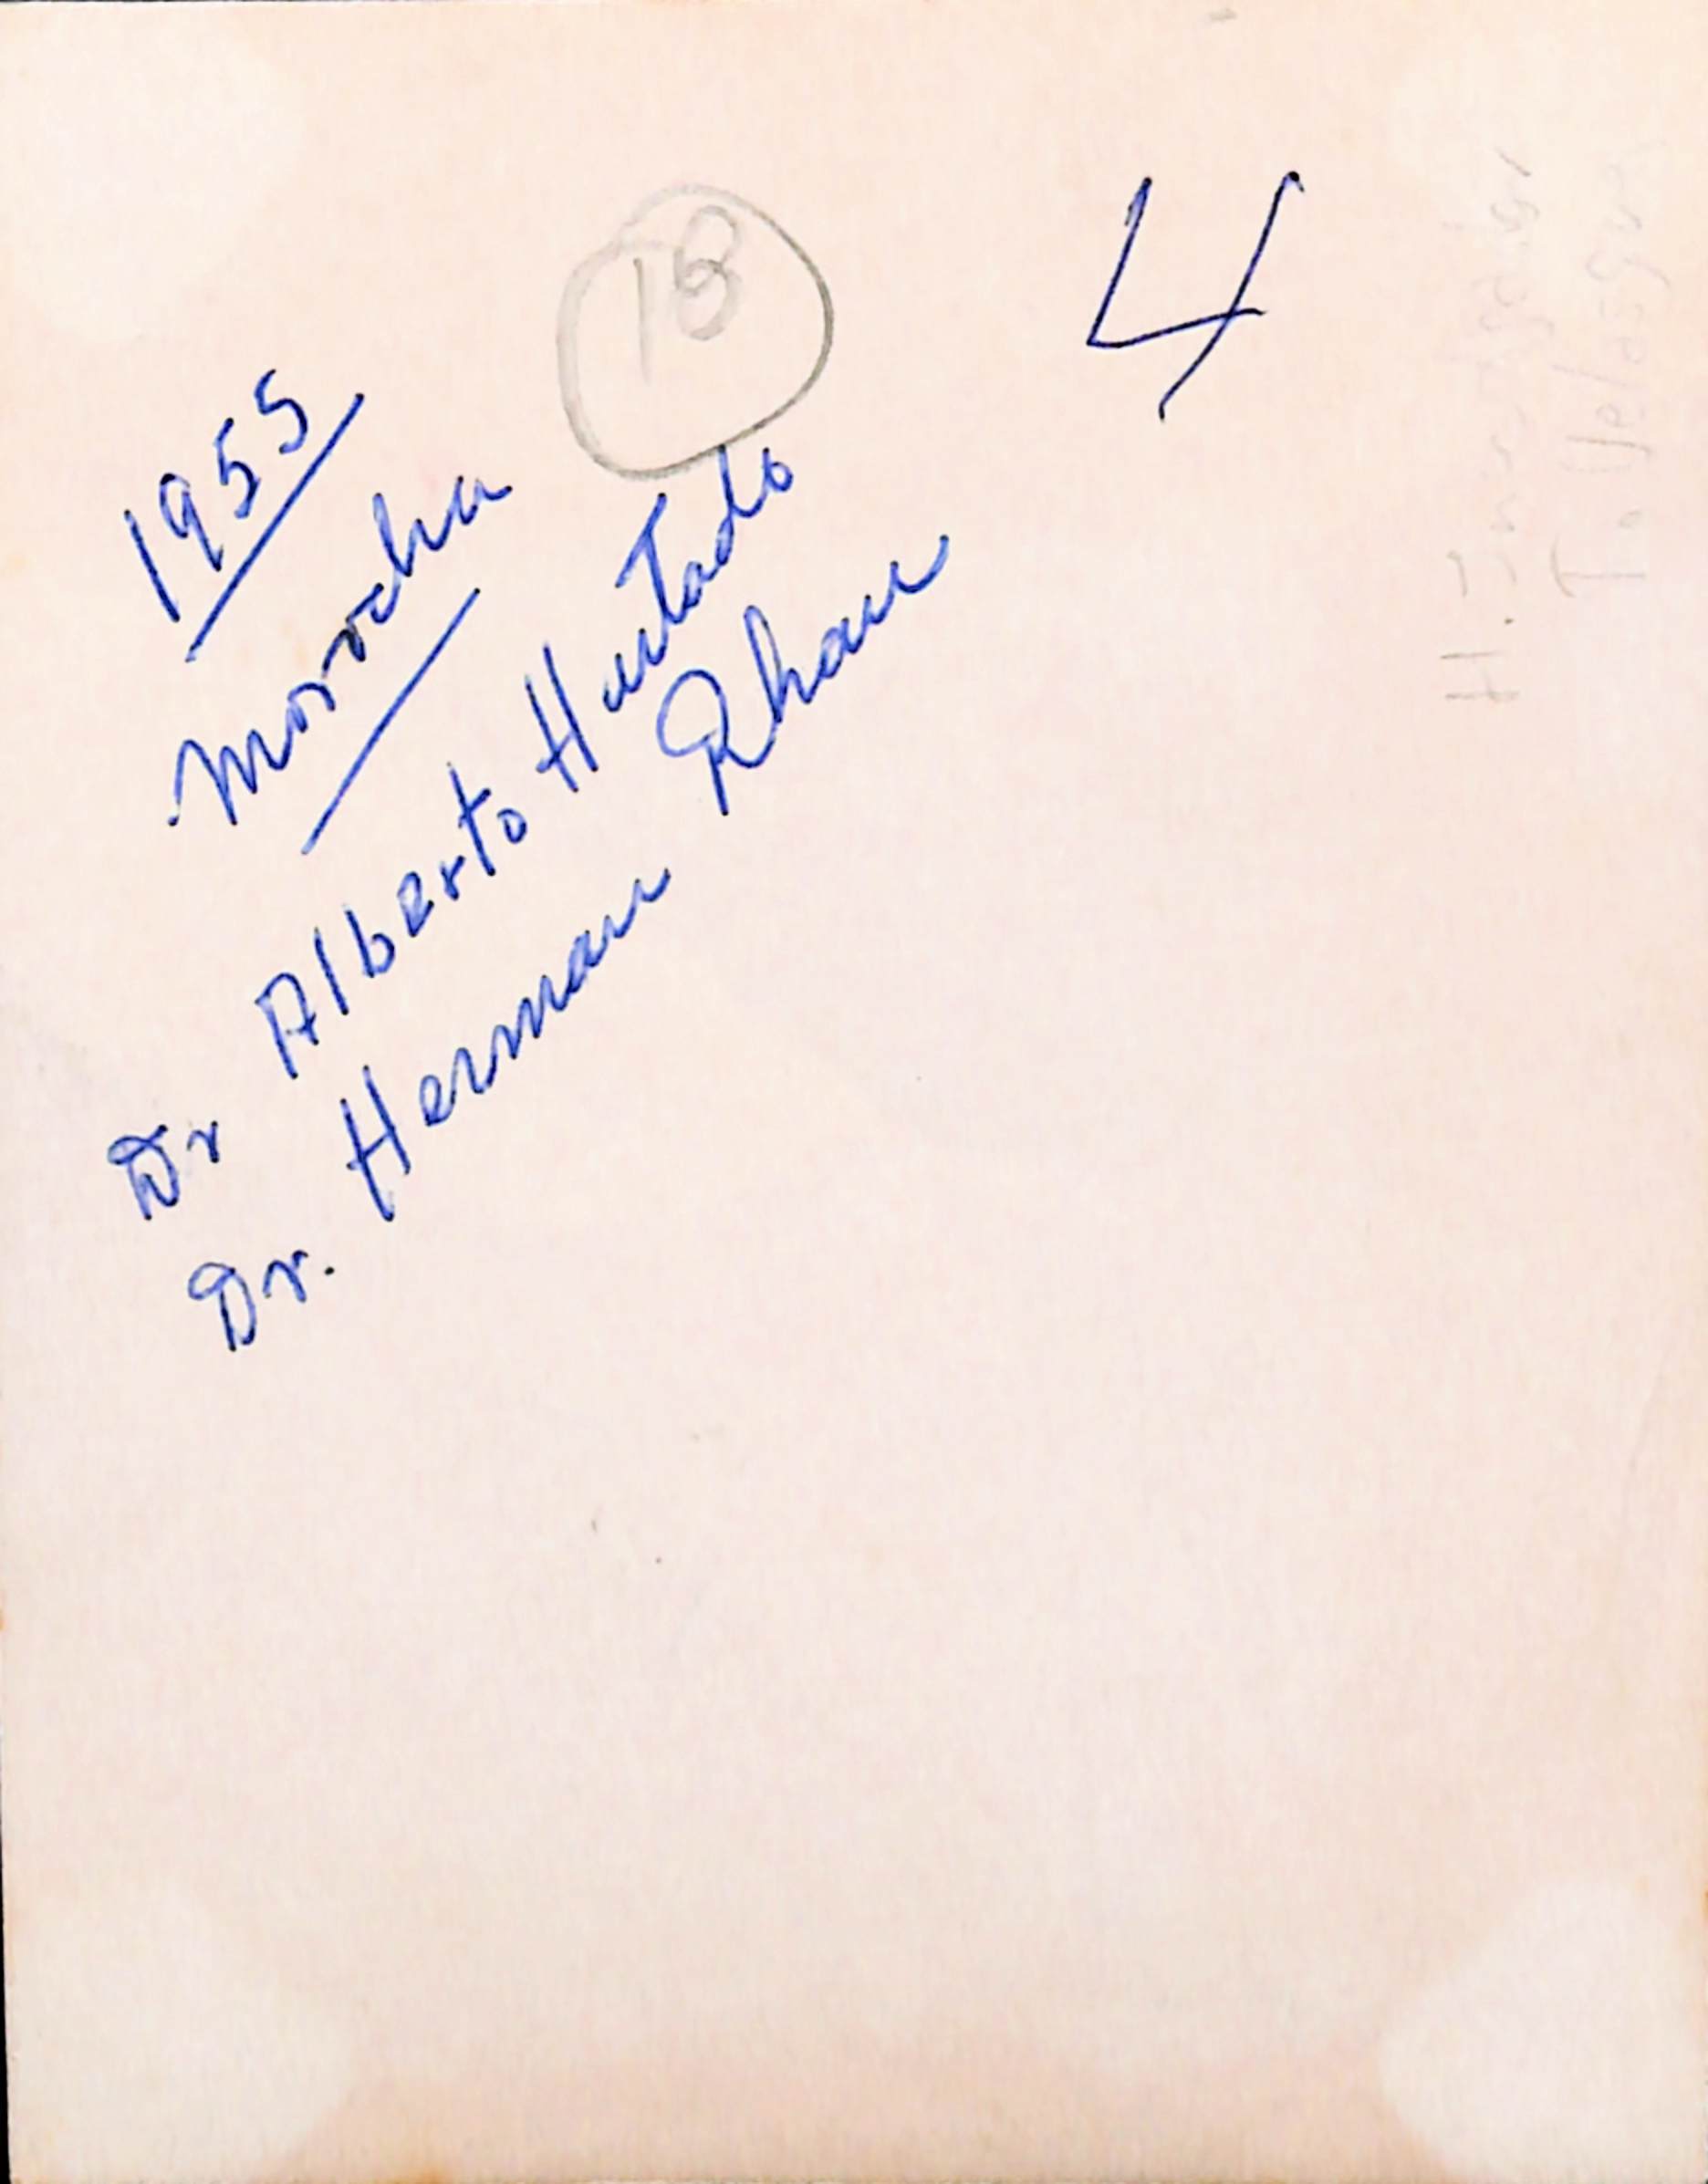 18
4
1955
Morocha
Dr Alberto Hurtado
Dr. Herman Rhan
T. Velasquez